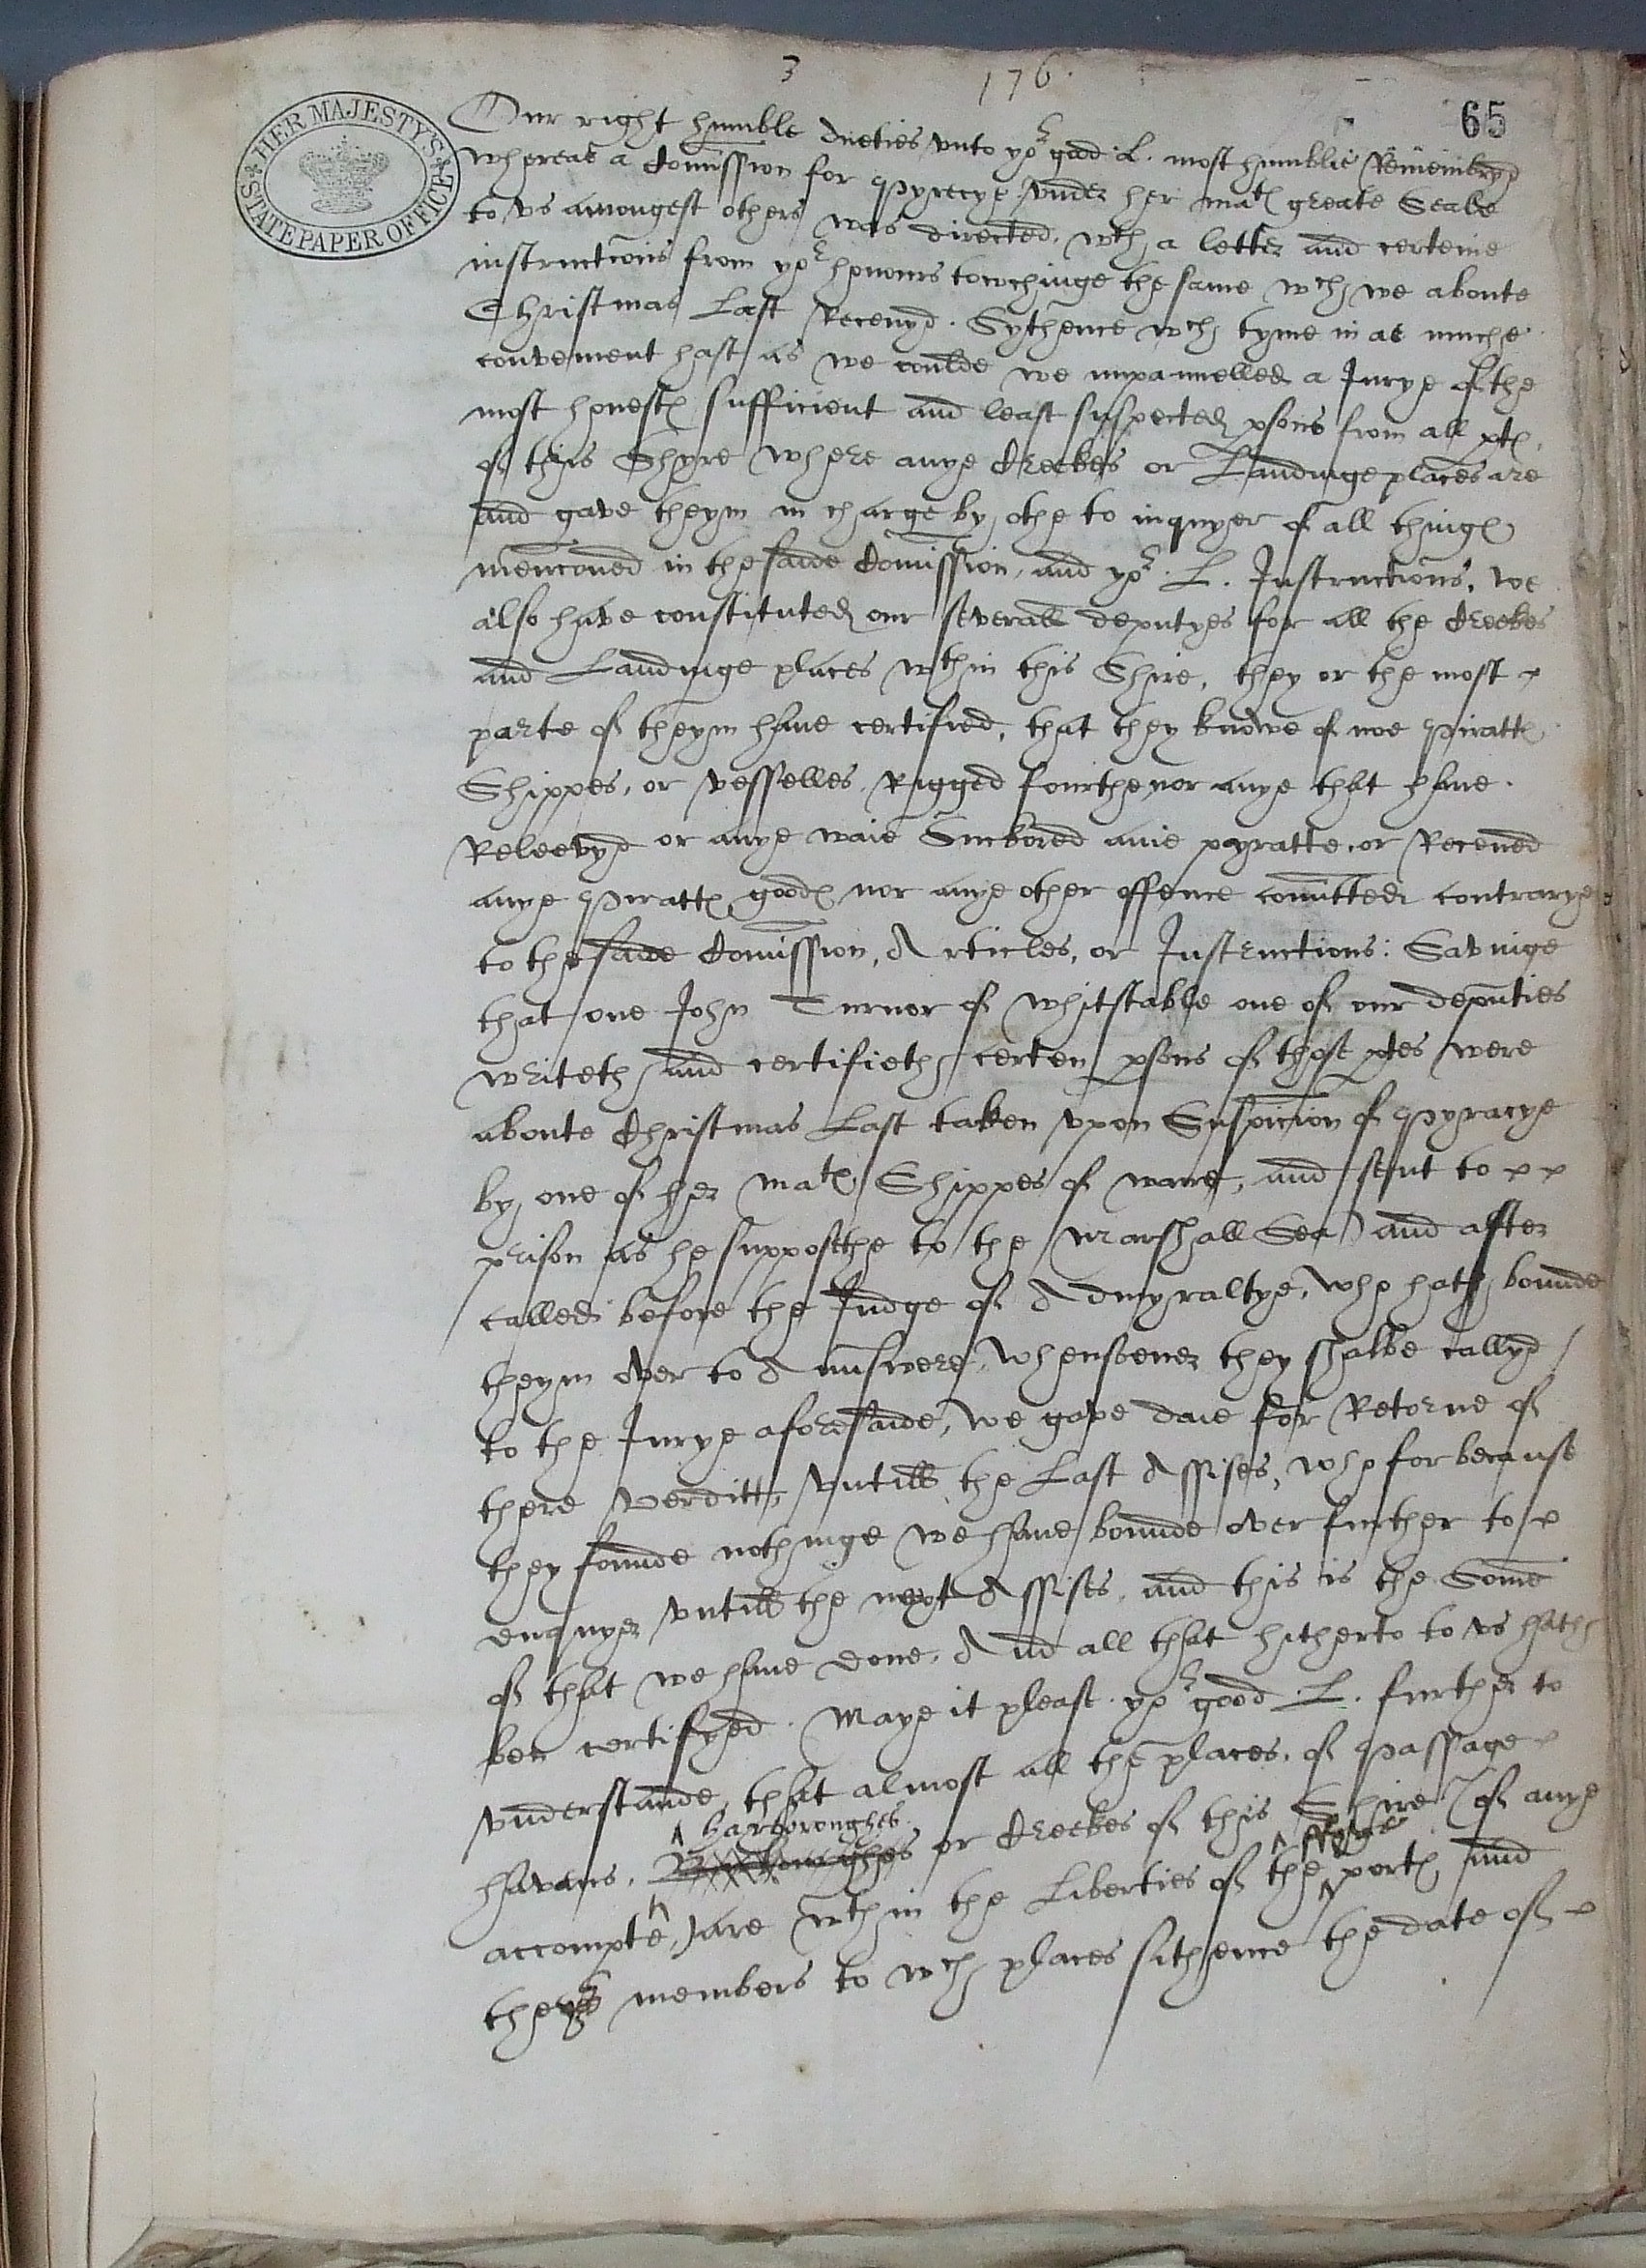 3
176.
65
HER MAJESTY'S STATE PAPER OFFICE
Our right humble dueties unto yor good L. most humblie Remembryd
whereas a Comission for Pyrecye under her matꝭ greate Seale
to us amongest others was directed, wth a letter and certeine
instructions from yor honours towchinge the same wch we aboute
Christmas Last Receuyd. Sythence wch tyme in as muche
convenient hast as we coulde we impannelled a Jurye of the
most honest sufficient and least suspected psons from all ptꝭ
of this Shyre where anye Creekes or Landinge places are
and gave theym in charge by othe to inquyer of all thingꝭ
mencioned in the saide Comission, and yor. L. Instructions, we
also have constituted our severall deputyes for all the Creekes
and Landinge places wthin this Shire, they or the most
parte of theym haue certified, that they knowe of noe Pirattꝭ
Shippes, or vesselles Rigged fourthe, nor anye that haue
Releevyd or anye waie Suckored anie pyratte, or Receued
anye Pirattꝭ goodꝭ nor anye other offence comitted contrarye
to the saide Comission, Articles, or Instructions: Savinge
that one John Turner of Whitstable one of our deputies
writeth and certifieth certen psons of those ptes were
aboute Christmas Last taken upon Suspicion of Pyracye
by one of her matꝭ Shippes of warre, and sent to
prison as he supposethe to the Marshall Sea, and after
called before the Judge of Admyraltye, who hath bounde
theym over to Aunswere, whensoeuer they shalbe callyd
to the Jurye aforesaide, we gave daie for Retorne of
there Verditt, untill the Last Assises, who for because
they founde nothinge we haue bounde over further to
enquyer untill the next Assises, and this is the Some
of that we haue done, And all that hitherto to us hath
ben certifyed. Maye it please yor good L. further to
understande, that almost all the places, of Passage
Harboroughes
havens, or Creekes of this Shire (of anye
accompte) are wthin the Liberties of the portꝭ and
there members to wch places sithence the date of